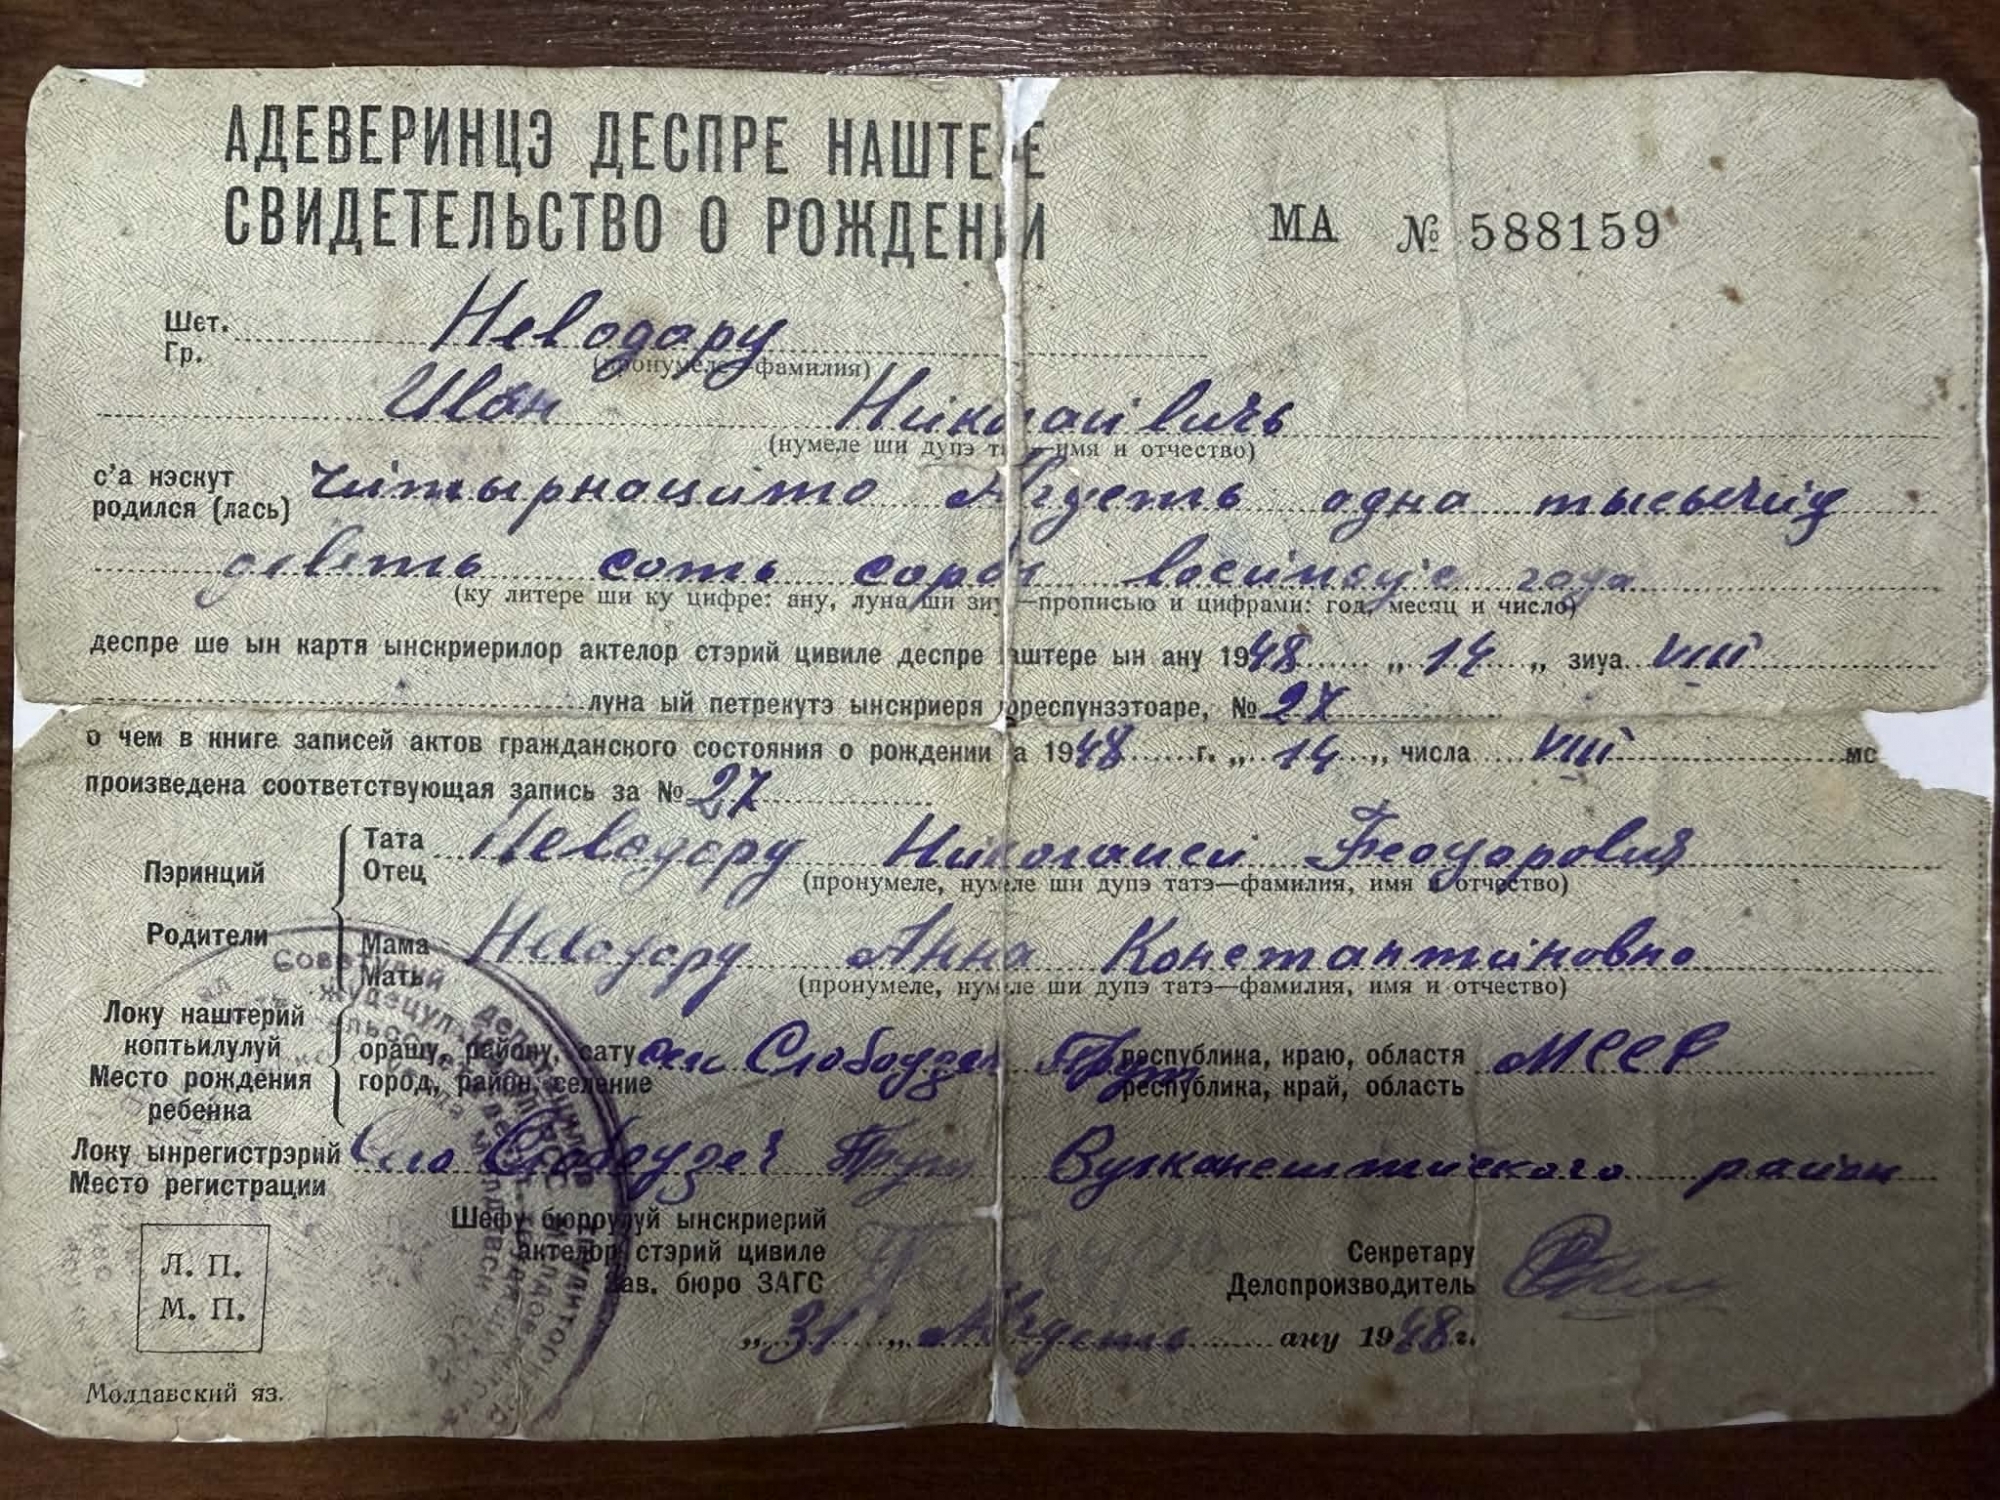 АДЕВЕРИНЦЭ ДЕСПРЕ НАШТЕРЕ
СВИДЕТЕЛЬСТВО О РОЖДЕНИИ
МА № 588159
Шет. Неводару
Гр.
(пронумеле—фамилия)
Иван Николаивичь
(нумеле ши дупэ татэ—имя и отчество)
с'а нэскут
родился (лась) Читырнацито Август одна тысычию
девять соть сорок восимоус года
(ку литере ши ку цифре: ану, луна ши зиуа—прописью и цифрами: год, месяц и число)
деспре ше ын картя ынскриерилор актелор стэрий цивиле деспре наштере ын ану 1948 „ 14 „ зиуа VIII
луна ый петрекутэ ынскриеря кореспунзэтоаре, № 27
о чем в книге записей актов гражданского состояния о рождении за 1948 г. „ 14 „ числа VIII мс
произведена соответствующая запись за № 27
Пэринций
Тата
Отец Неводару Николаией Феодорович
(пронумеле, нумеле ши дупэ татэ—фамилия, имя и отчество)
Родители
Мама
Мать Неводару Анна Константиновно
(пронумеле, нумеле ши дупэ татэ—фамилия, имя и отчество)
Локу наштерий
коптьилулуй
Место рождения
ребенка
орашу, району, сату Слободзея Прут республика, краю, областя МССР
город, район, селение республика, край, область
Локу ынрегистрэрий
Место регистрации Село Слободзея Прут Вулканештийского район
Шефу бюроулуй ынскриерий
актелор стэрий цивиле
Зав. бюро ЗАГС
Секретару
Делопроизводитель
„ 31 „ Августь ану 1948 г.
Л. П.
М. П.
Молдавский яз.